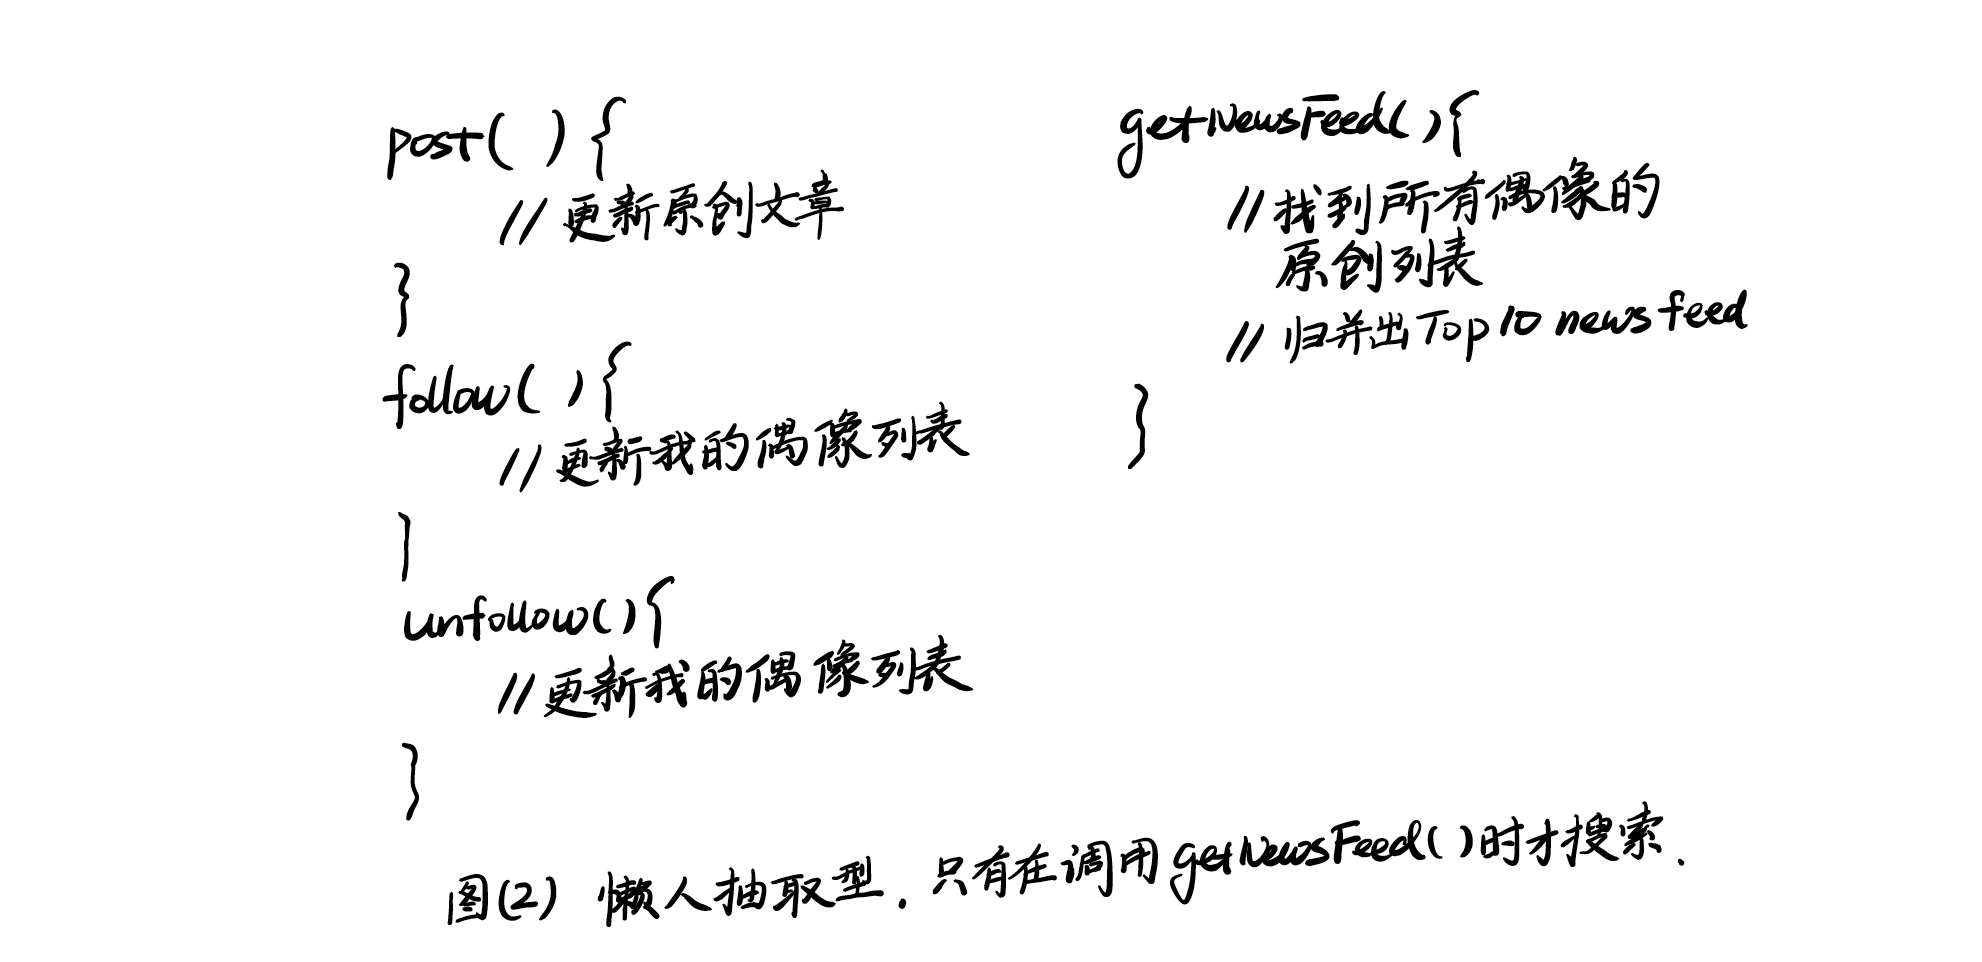 post( ) {
// 更新原创文章
}
follow( ) {
// 更新我的偶像列表
}
unfollow() {
// 更新我的偶像列表
}
getNewsFeed( ) {
// 找到所有偶像的
原创列表
// 归并出Top 10 news feed
}
图(2) 懒人抽取型. 只有在调用getNewsFeed( )时才搜索.